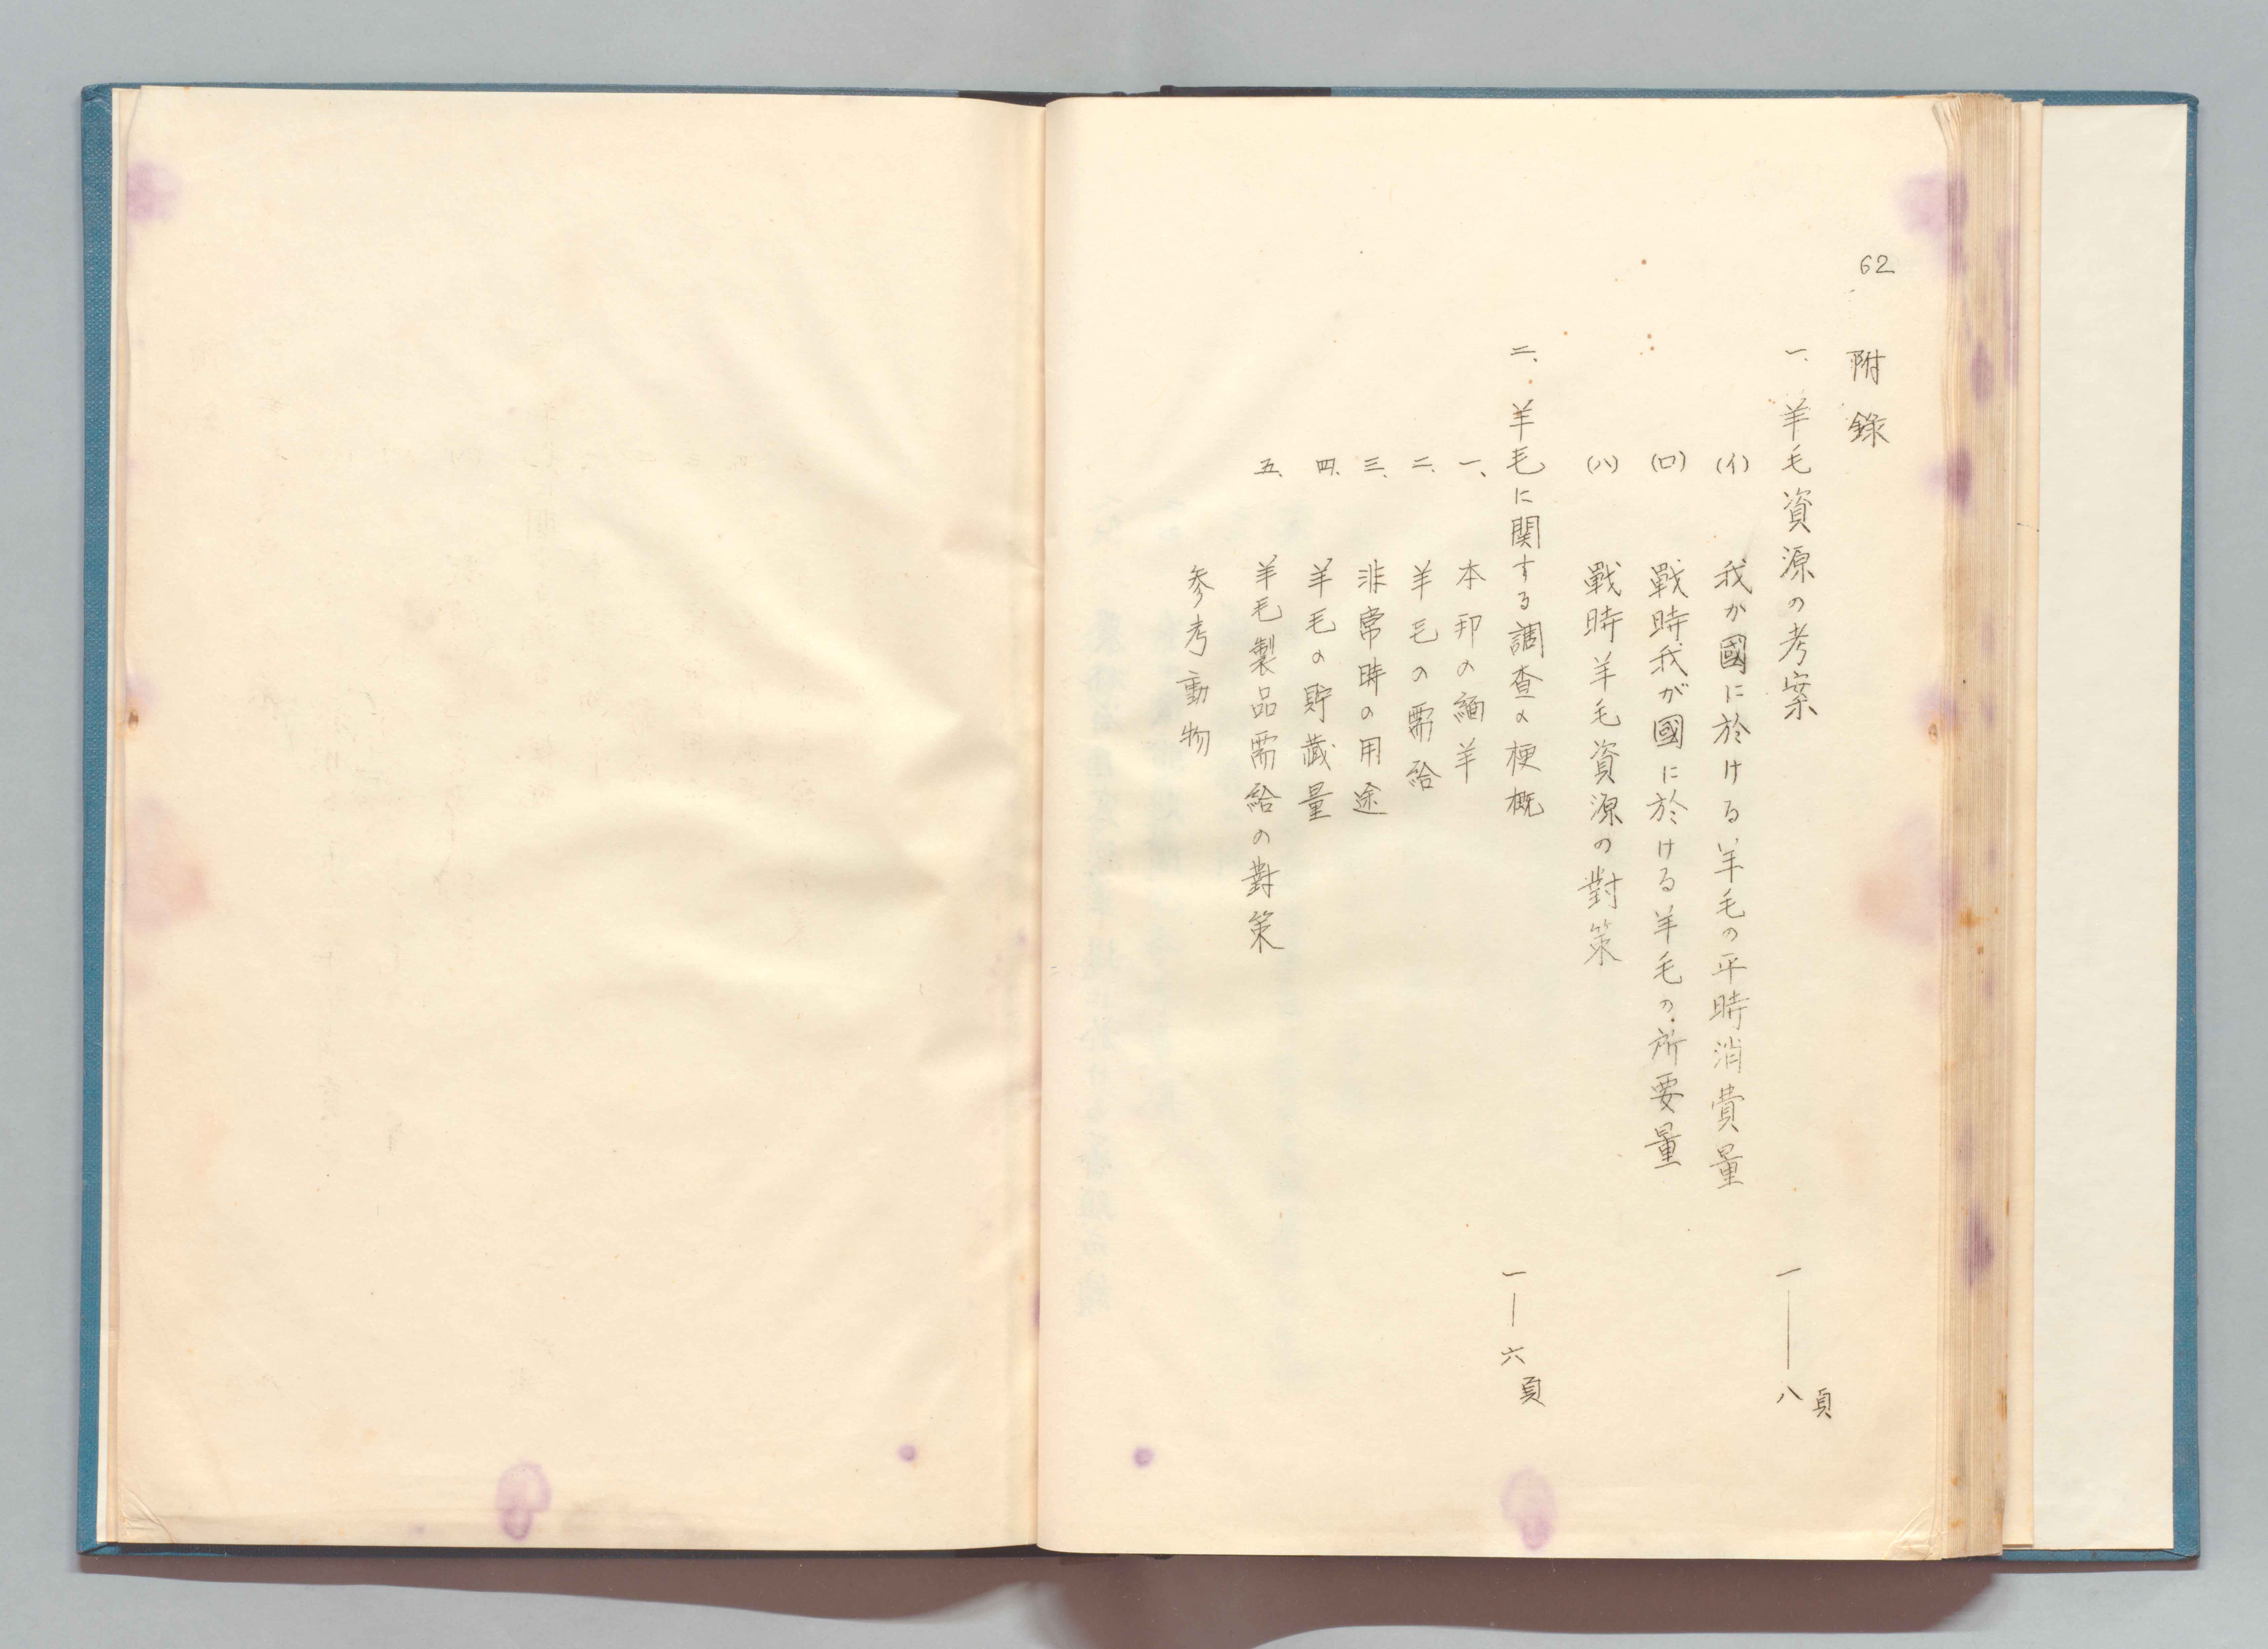 62
附錄
一、羊毛資源の考案 一——八頁
(イ) 我か國に於ける羊毛の平時消費量
(ロ) 戰時我が國に於ける羊毛の所要量
(ハ) 戰時羊毛資源の對策
二、羊毛に関する調査の梗概 一—六頁
一、本邦の緬羊
二、羊毛の需給
三、非常時の用途
四、羊毛の貯蔵量
五、羊毛製品需給の對策
参考動物